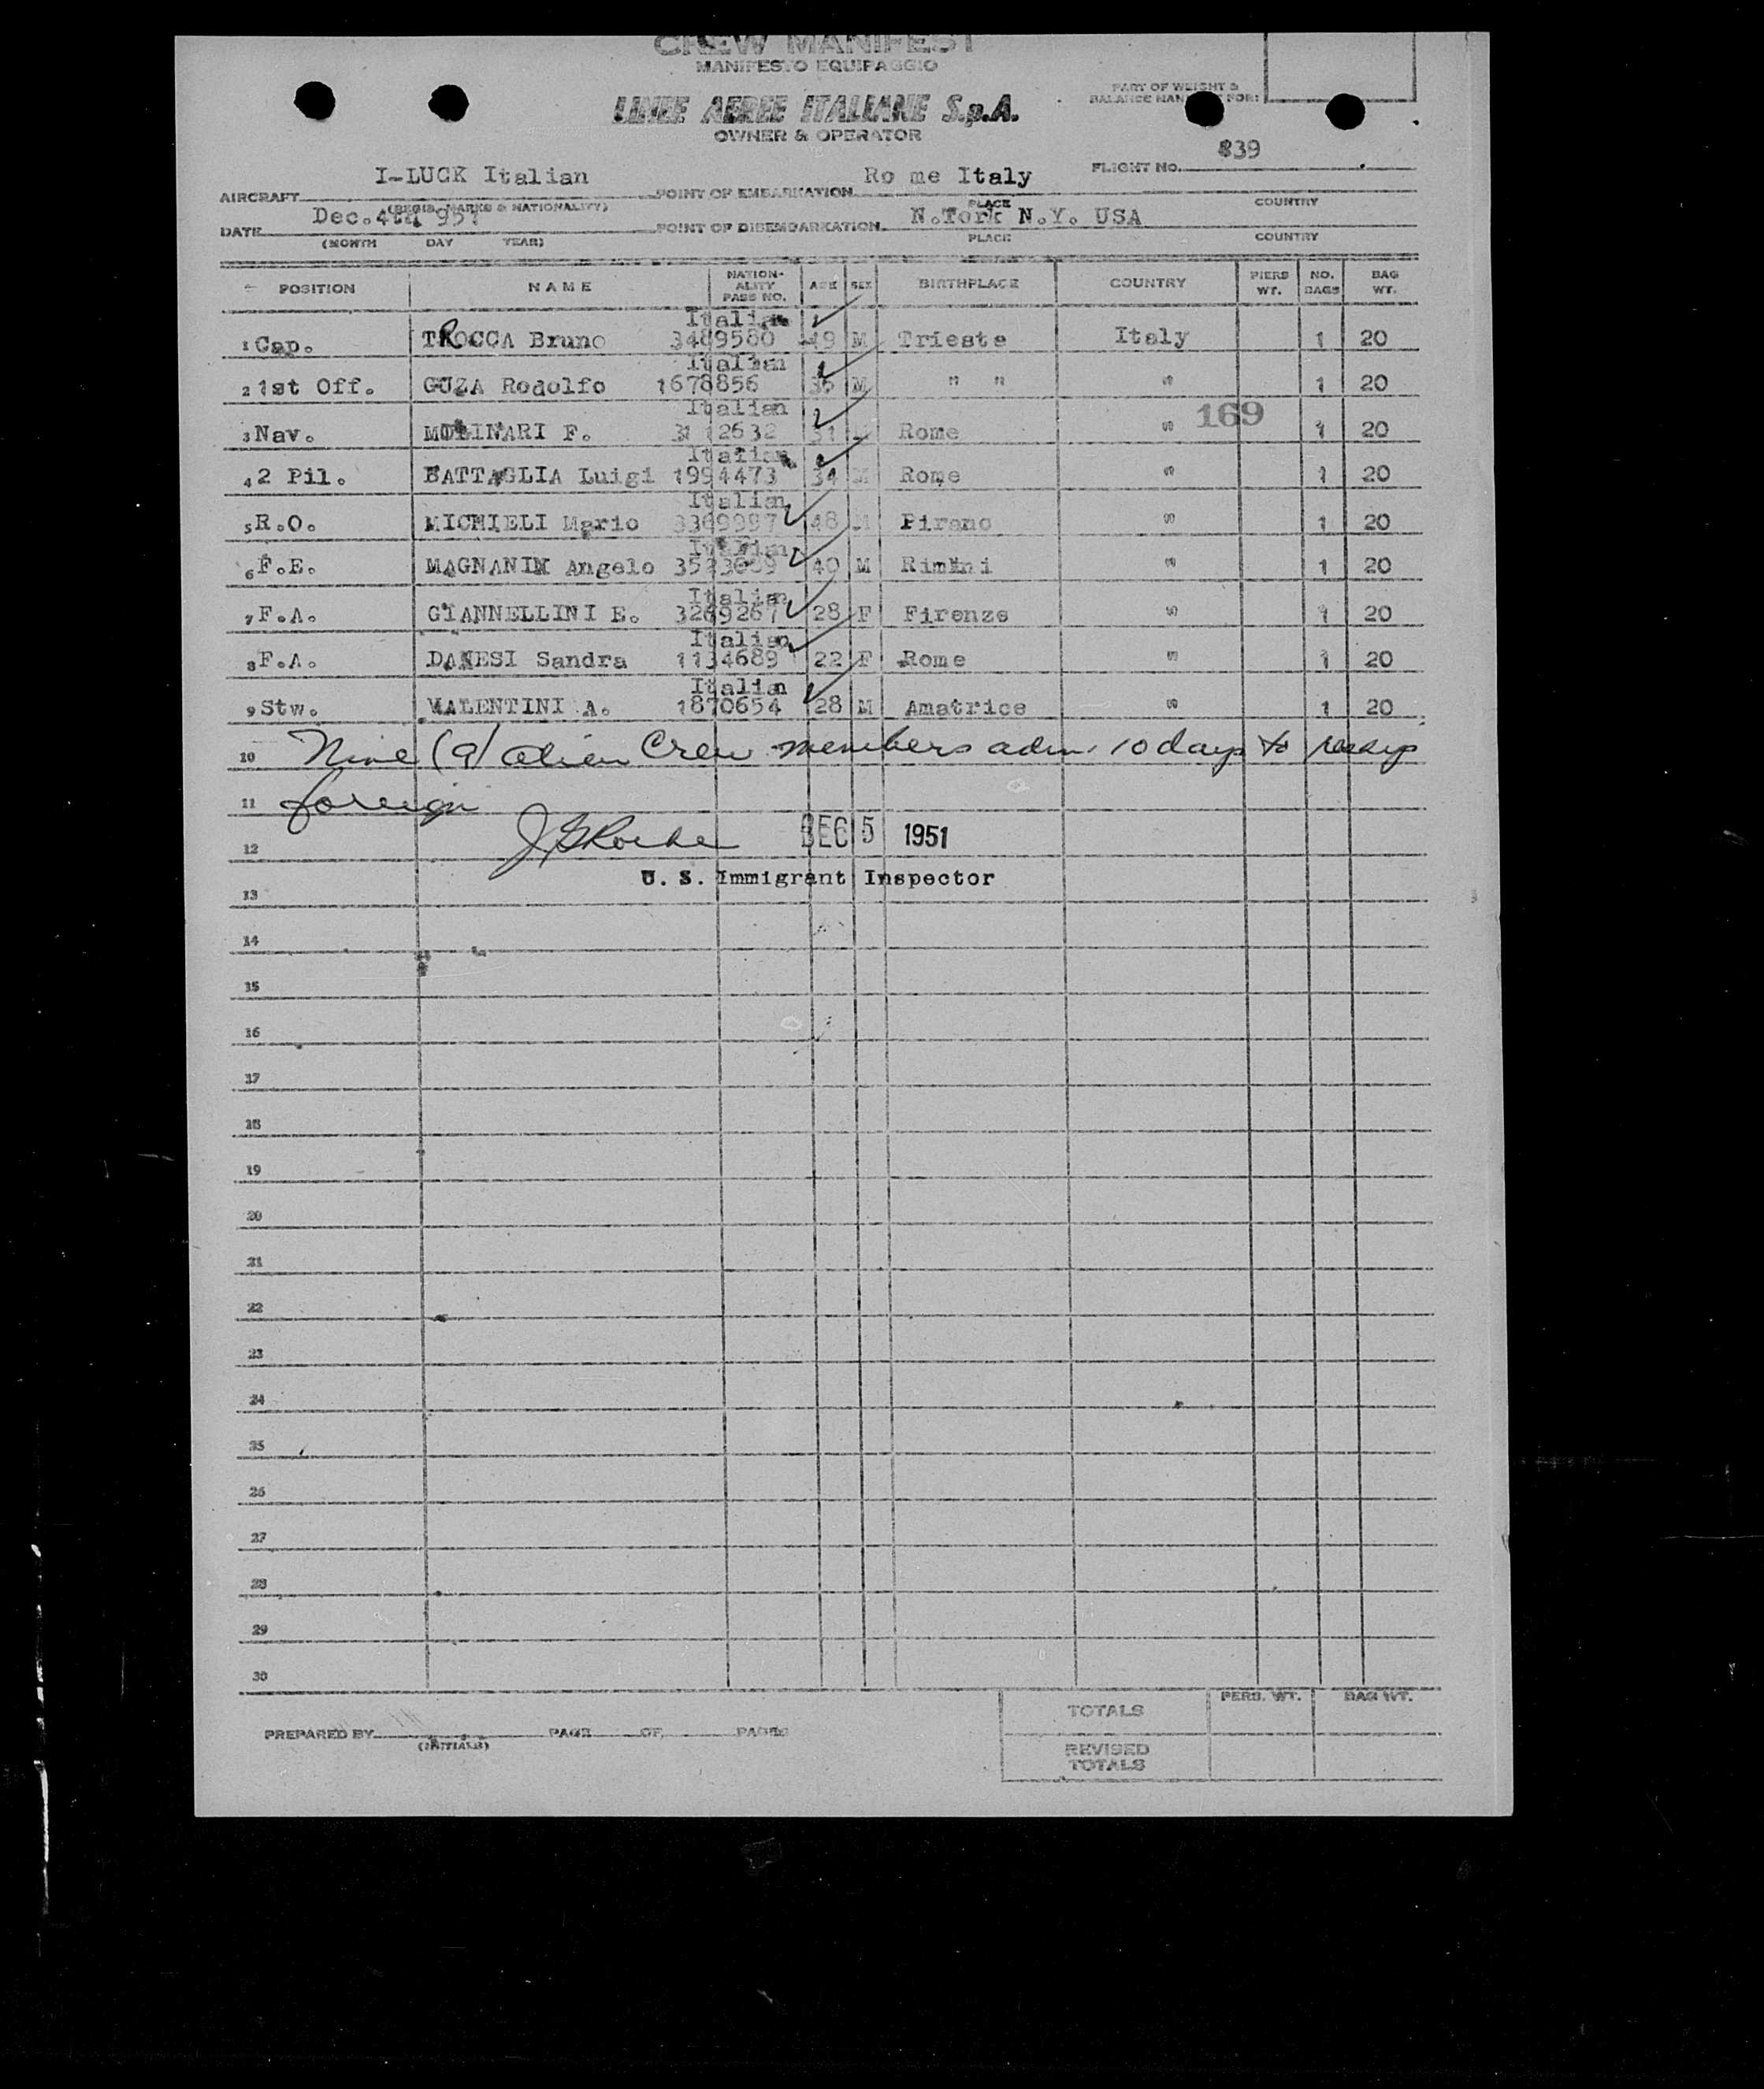 CREW MANIFEST
MANIFESTO EQUIPAGGIO
PART OF WEIGHT &
BALANCE MAN FOR:
LINEE AEREE ITALIANE S.p.A.
OWNER & OPERATOR
FLIGHT NO. 839
AIRCRAFT I-LUCK Italian POINT OF EMBARKATION Ro me Italy
(REGIS. MARKS & NATIONALITY) PLACE COUNTRY
DATE Dec.4th 951 POINT OF DISEMBARKATION N.Tork N.Y. USA
(MONTH DAY YEAR) PLACE COUNTRY
POSITION NAME NATION-ALITY PASS NO. AGE SEX BIRTHPLACE COUNTRY PIERS WT. NO. BAGS BAG WT.
Italian
1 Cap. TROCCA Bruno 3489580 49 M Trieste Italy 1 20
Italian
2 1st Off. GUZA Rodolfo 1678856 35 M " " " 1 20
Italian
169
3 Nav. MOLINARI F. 31 M Rome " 1 20
Italian
4 2 Pil. BATTAGLIA Luigi 1994473 34 M Rome " 1 20
Italian
5 R.O. MICHIELI Mario 3369997 48 M Pirano " 1 20
Italian
6 F.E. MAGNANIM Angelo 40 M Rimini " 1 20
Italian
7 F.A. GIANNELLINI E. 3269267 28 F Firenze " 1 20
Italian
8 F.A. DANESI Sandra 1134689 22 F Rome " 1 20
Italian
9 Stw. VALENTINI A. 1870654 28 M Amatrice " 1 20
10 Nine (9) alien Crew members adm. 10 days to
11 foreign
12 DEC 5 1951
U. S. Immigrant Inspector
13
14
15
16
17
18
19
20
21
22
23
24
25
26
27
28
29
30
TOTALS PERS. WT. BAG WT.
PREPARED BY PAGE OF PAGES
(INITIALS)
REVISED
TOTALS